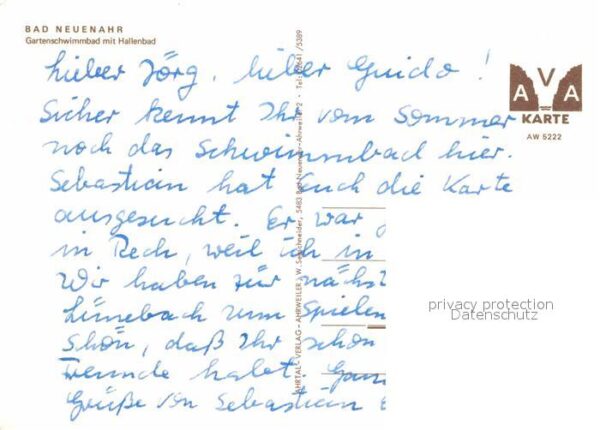 BAD NEUENAHR
Gartenschwimmbad mit Hallenbad
lieber Jörg, lieber Guido!
Sicher kennt Ihr vom Sommer
noch das Schwimmbad hier.
Sebastian hat Euch die Karte
ausgesucht. Er war
in Rech, weil ich in
Wir haben für nächst
Lünebach zum Spielen
Schön, daß Ihr schon
Freunde habt.
Grüße von Sebastian
AHRTAL-VERLAG - AHRWEILER - W. Schneider, 5483 Bad Neuenahr-Ahrweiler 2 - Tel. 02641/5389
AVA
KARTE
AW 5222
privacy protection
Datenschutz